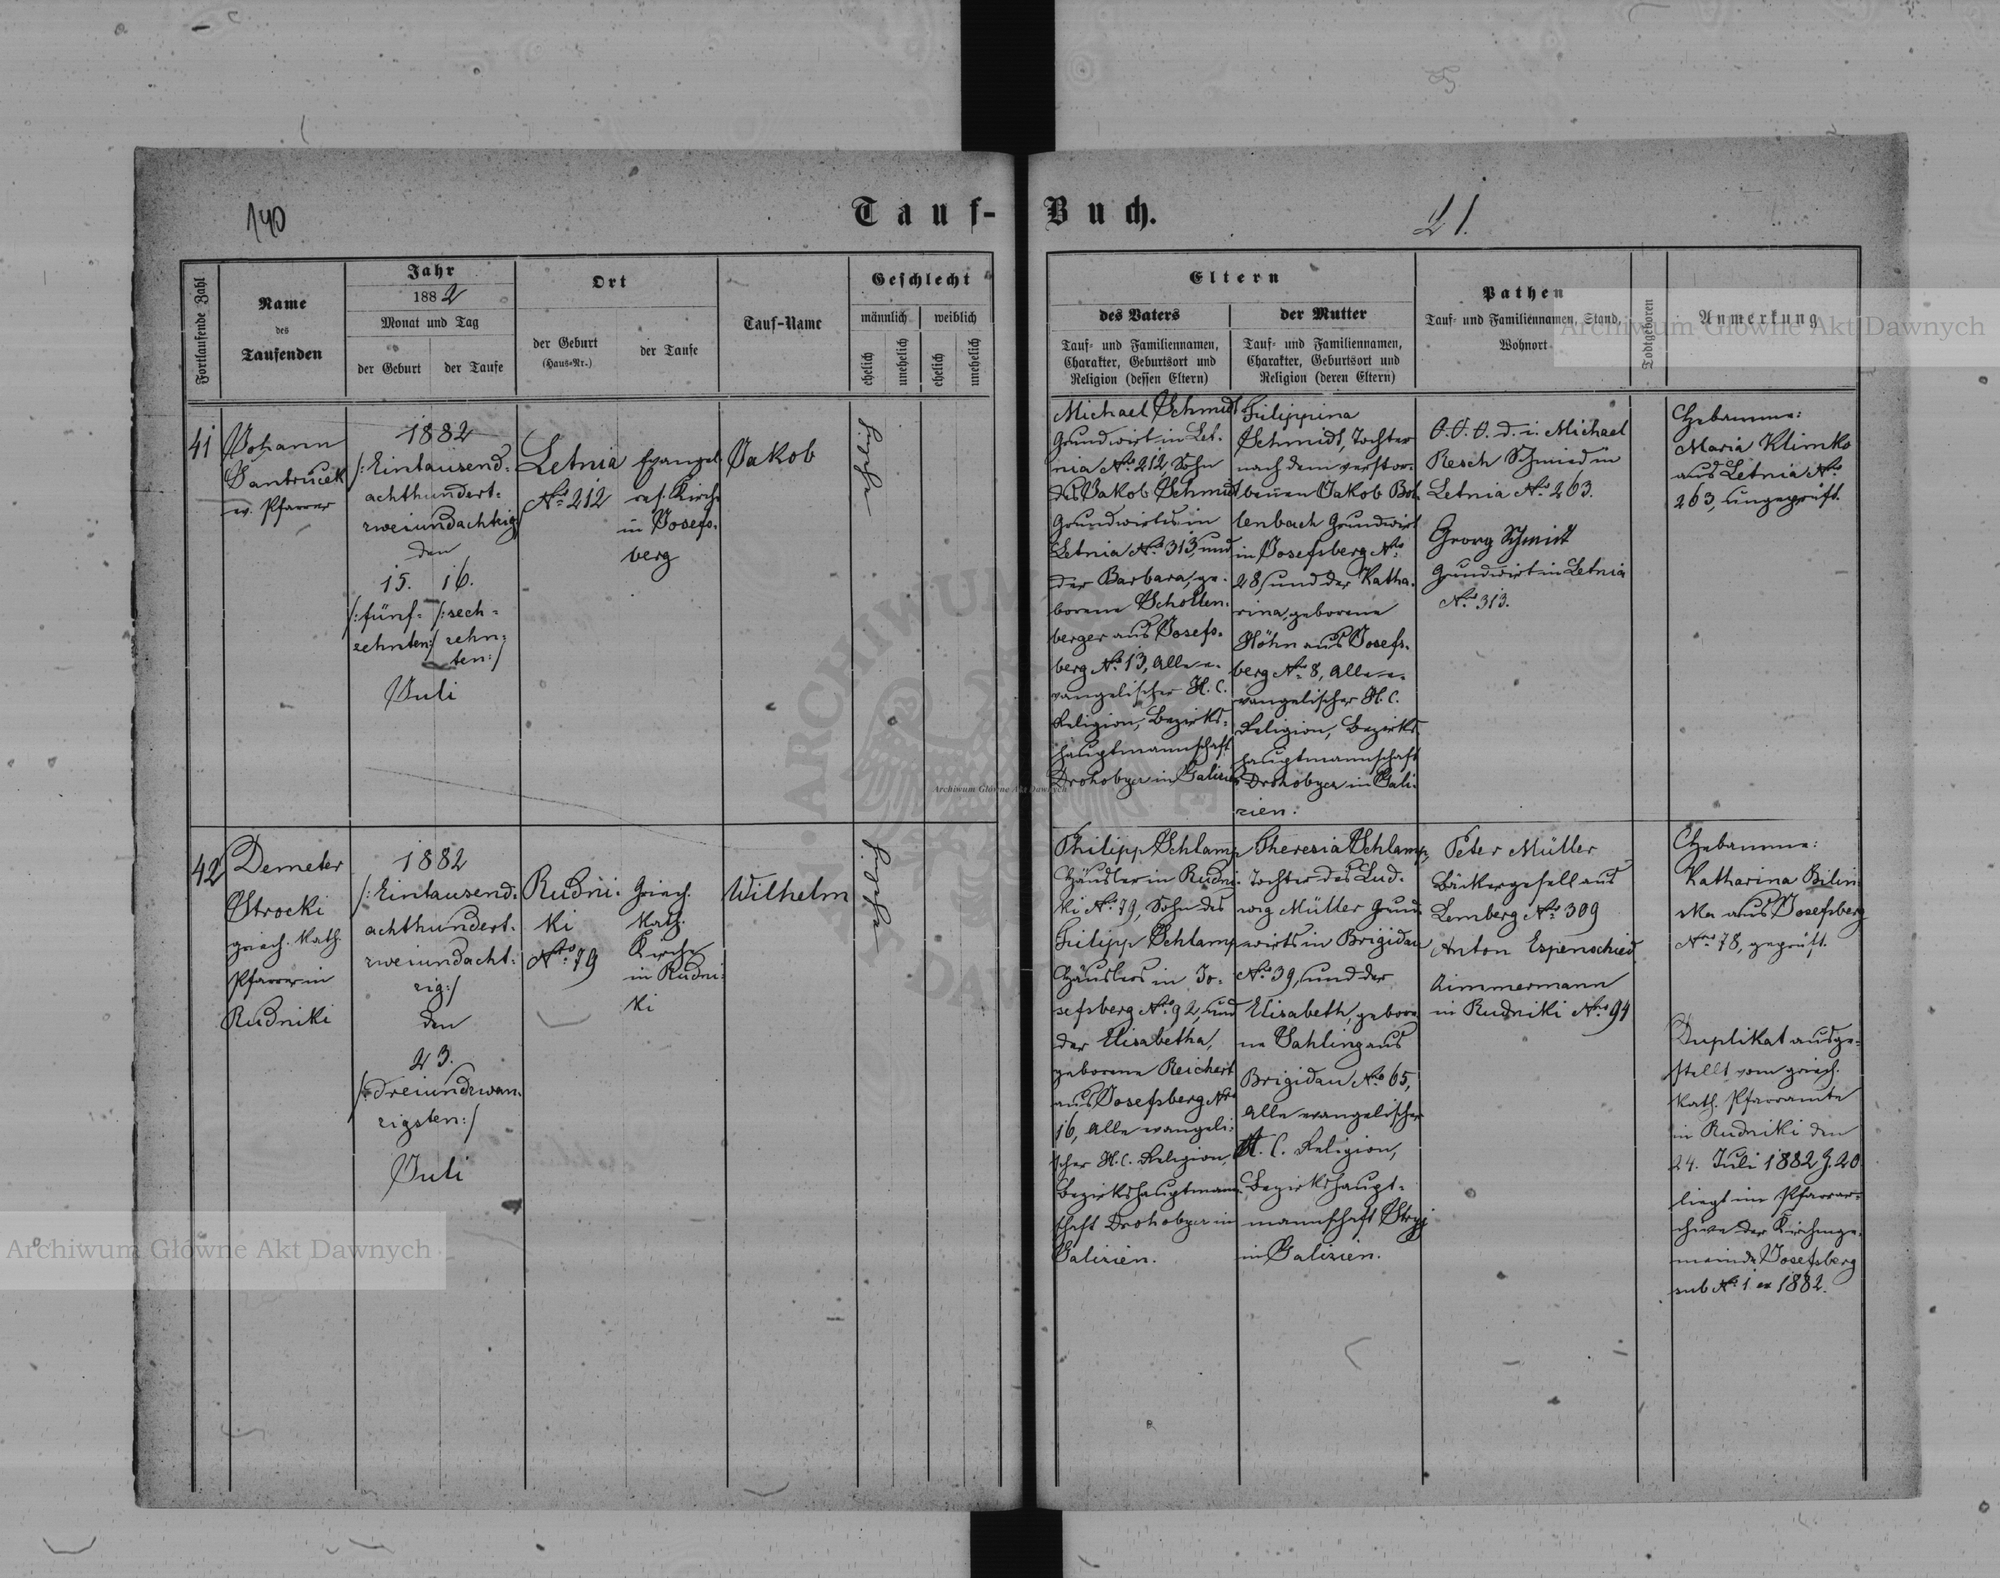 140
Tauf-
Buch.
21.
Fortlaufende Zahl
Name
des
Taufenden
Jahr
1882
Monat und Tag
der Geburt
der Taufe
Ort
der Geburt
(Haus-Nr.)
der Taufe
Tauf-Name
Geschlecht
männlich
weiblich
ehelich
unehelich
ehelich
unehelich
Eltern
des Vaters
Tauf- und Familiennamen,
Charakter, Geburtsort und
Religion (dessen Eltern)
der Mutter
Tauf- und Familiennamen,
Charakter, Geburtsort und
Religion (deren Eltern)
Pathen
Tauf- und Familiennamen, Stand,
Wohnort
Todtgeboren
Anmerkung
41
Johann
Jantrucek
ev. Pfarrer
1882
/:Eintausend-
achthundert-
zweiundachtzig
den
15.
16.
/:fünf-
zehnten:/
/:sech-
zehn-
ten:/
Juli
Letnia
Nro 212
Evangel.
ref. Kirche
in Josefs-
berg
Jakob
ehelich
Michael Schmidt
Grundwirt in Let-
nia Nro 212, Sohn
des Jakob Schmidt
Grundwirts in
Letnia Nro 313, und
der Barbara, ge-
borene Schollen-
berger aus Josefs-
berg Nro 13, Alle e-
vangelischer H.C.
Religion, Bezirks-
hauptmannschaft
Drohobycz in Galizien
Filippina
Schmidt, Tochter
nach dem verstor-
benen Jakob Bol-
lenbach Grundwirt
in Josefsberg Nro
28, und der Katha-
rina, geborene
Höhn aus Josefs-
berg Nro 8, Alle e-
vangelischer H.C.
Religion, Bezirks-
hauptmannschaft
Drohobycz in Gali-
zien.
d. i. Michael
Resch Schmied in
Letnia Nro 263.
Georg Schmidt
Grundwirt in Letnia
Nro 313.
Hebamme:
Maria Klimko
aus Letnia Nro
263, ungeprüft.
42
Demeter
Strocki
griech. kath.
Pfarrer in
Rudniki
1882
/:Eintausend-
achthundert-
zweiundacht-
zig:/
den
23.
/:dreiundzwan-
zigsten:/
Juli
Rudni-
ki
Nro 79
Griech.
kath.
Kirche
in Rudni-
ki
Wilhelm
ehelich
Philipp Schlamp
Händler in Rudni-
ki Nro 79, Sohn des
Filipp Schlamp
Häuslers in Jo-
sefsberg Nro 92, und
der Elisabetha,
geborene Reichert
aus Josefsberg Nro
16, Alle evangeli-
scher H.C. Religion,
Bezirkshauptmann-
schaft Drohobycz in
Galizien.
Theresia Schlamp,
Tochter des Lud-
wig Müller Grund-
wirts in Brigidau
Nro 39, und der
Elisabeth, gebore-
ne Sahling aus
Brigidau Nro 65,
Alle evangelischer
A. C. Religion,
Bezirkshaupt-
mannschaft Stryj
in Galizien.
Peter Müller
Bäckergesell aus
Lemberg Nro 309
Anton Espenschied
Zimmermann
in Rudniki Nro 94
Hebamme:
Katharina Bilin-
ska aus Josefsberg
Nro 78, geprüft.
Duplikat ausge-
stellt vom griech.
kath. Pfarramte
in Rudniki den
24. Juli 1882 Z. 20
liegt im Pfarrar-
chive der Kirchenge-
meinde Josefsberg
sub Nro 1 ex 1882.
Archiwum Główne Akt Dawnych
Archiwum Główne Akt Dawnych
Archiwum Główne Akt Dawnych